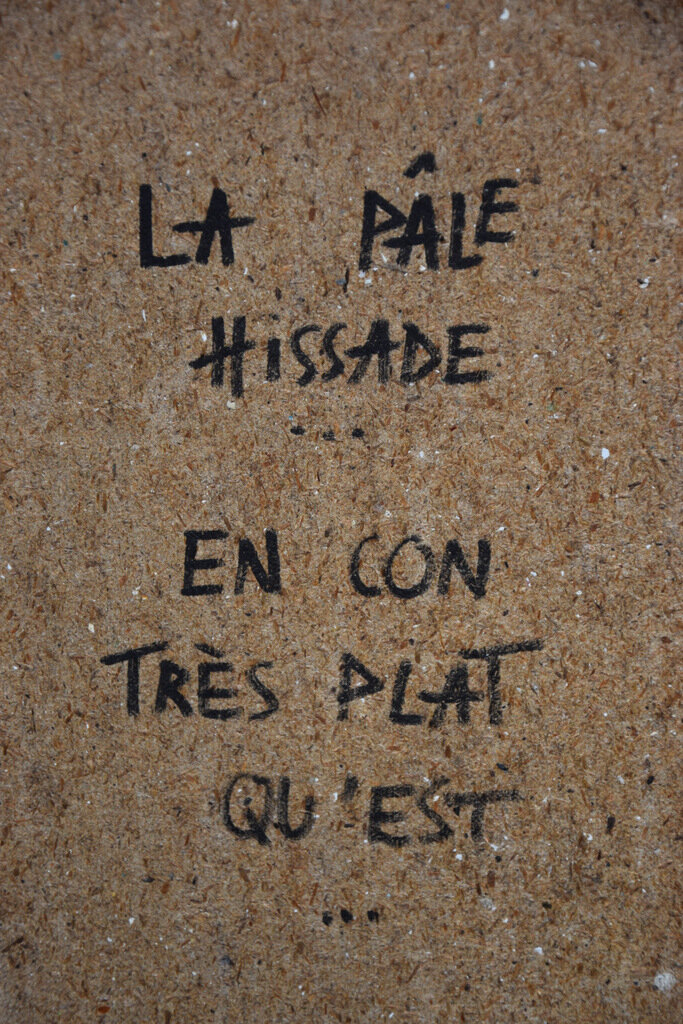 LA PÂLE
HISSADE
...
EN CON
TRÈS PLAT
QU'EST
...